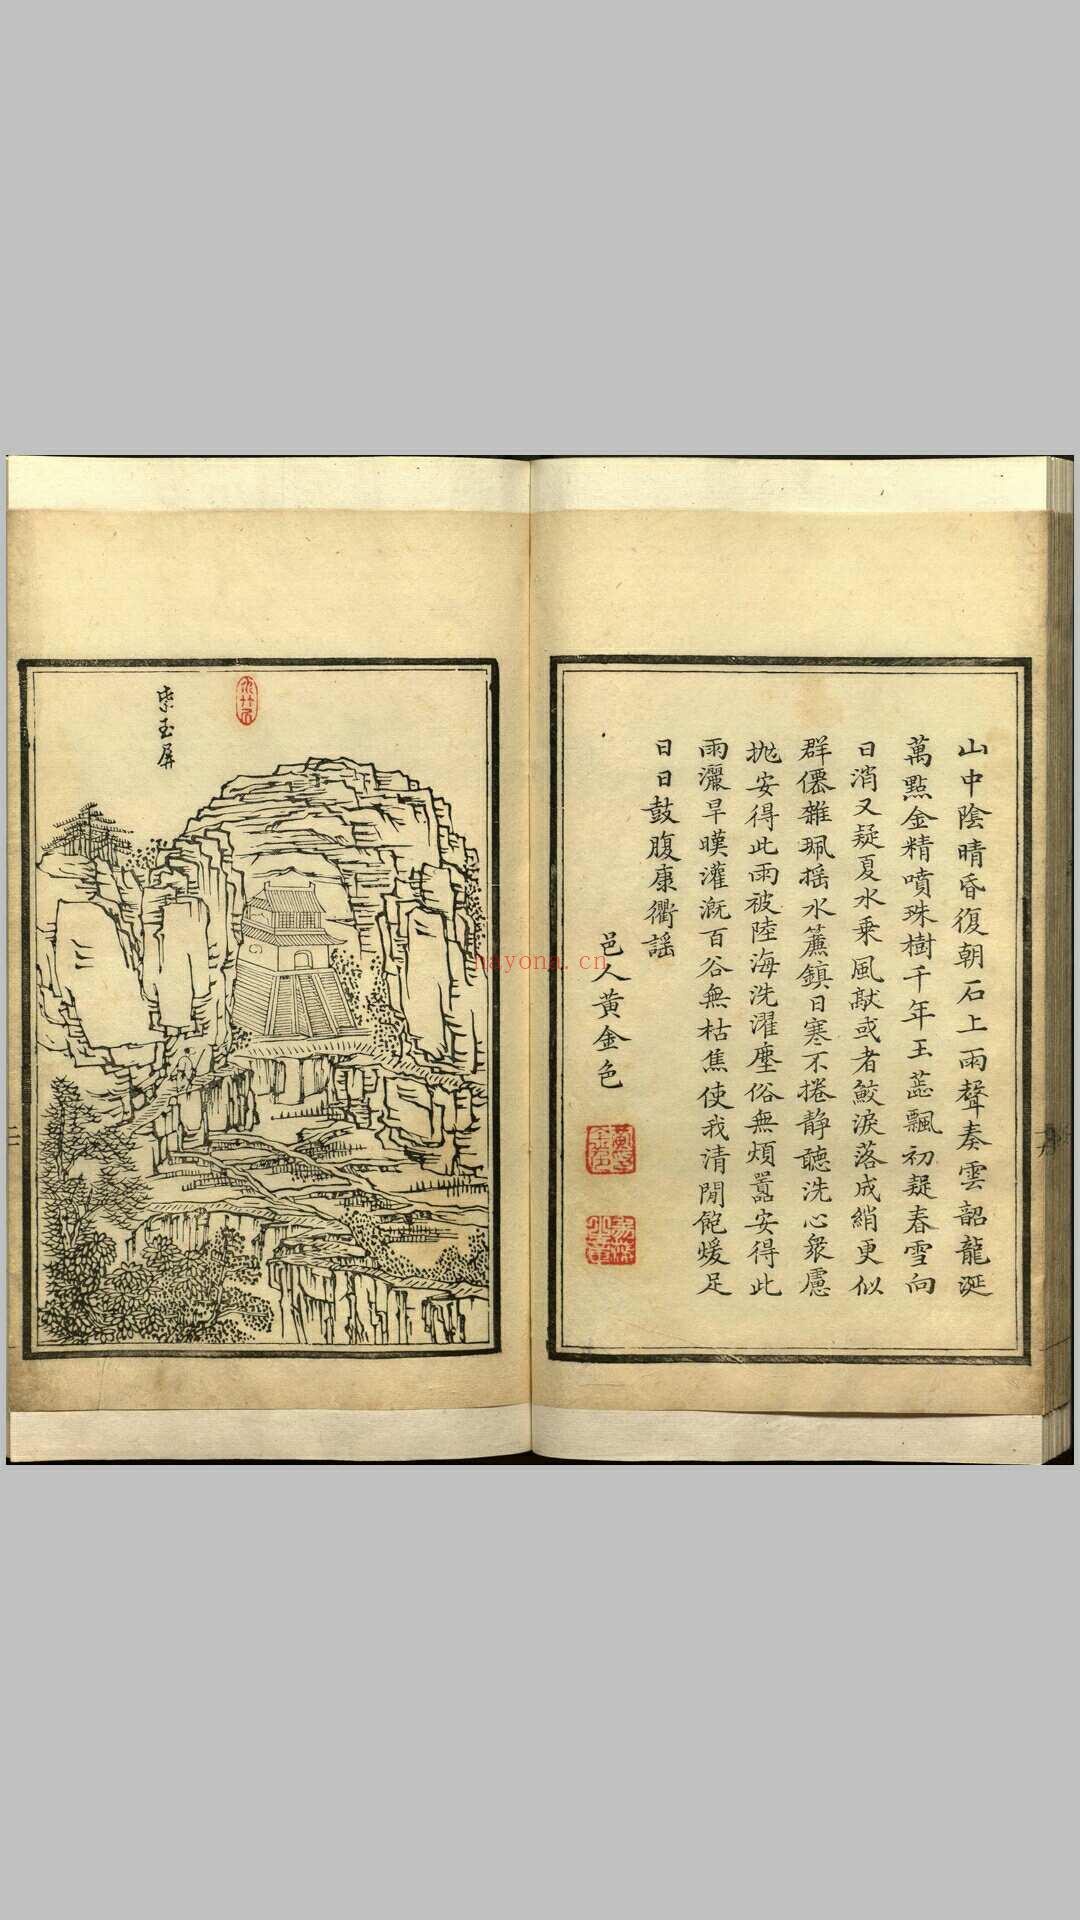 山中陰晴昏復朝石上雨聲奏雲韶龍涎
萬點金精噴珠樹千年玉蕊飄初疑春雪向
日消又疑夏水乗風㱃或者鮫淚落成綃更似
群僊雜珮摇水簾鎮日寒不捲静聽洗心衆慮
抛安得此雨被陸海洗濯塵俗無煩囂安得此
雨灑旱暵灌溉百谷無枯焦使我清閒飽煖足
日日鼓腹康衢謡
邑人黄金色
紫玉屏
nayona.cn